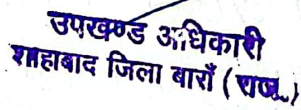 उपखण्ड अधिकारी
शाहाबाद जिला बाराँ (राज.)